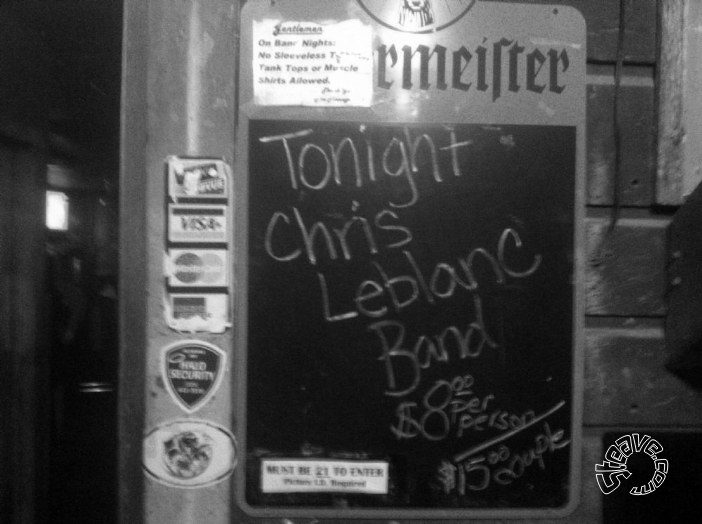 Gentlemen
On Band Nights:
No Sleeveless
Tank Tops or Muscle
Shirts Allowed.
rmeiſter
Tonight
Chris
Leblanc
Band
$8.00
per
person
$15.00 couple
VISA
HALO
SECURITY
MUST BE 21 TO ENTER
Picture I.D. Required
Steave.com